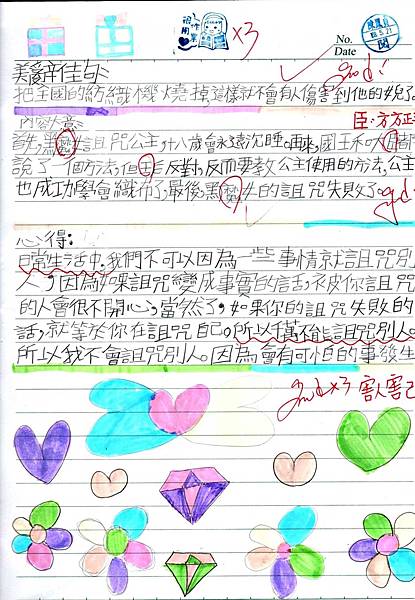 x3
No.
Date
閱
美辭佳句:
good!
把全國的紡織機燒掉這樣就不會有人傷害到他的女兒了。
內容大意:
臣,方方正
首先,黑魔女詛咒公主,十八歲會永遠沉睡。再來,國王和大臣都
說了一個方法,但王后反對,反而要教公主使用的方法,公主
也成功學會織布了,最後,黑魔女的詛咒失敗了。
good!
心得:
日常生活中,我們不可以因為一些事情就詛咒別
人,因為如果詛咒變成事實的話,被你詛咒
的人會很不開心,當然了,如果你的詛咒失敗的
話,就等於你在詛咒自己。所以千萬不能詛咒別人。
所以我不會詛咒別人。因為會有可怕的事發生
good x3 害人害己